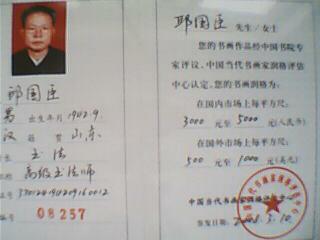 邱国臣
男 出生年月 1942.9
汉 籍贯 山东
书法
高级书法师
证号
No 08257
邱国臣 先生/女士
您的书画作品经中国书院专
家评议、中国当代书画家润格评估
中心认定,您的书画润格为:
在国内市场上每平方尺:
3000 元至 5000 元(人民币)
在国外市场上每平方尺:
500 元至 1000 元(美元)
中国当代书画家润格评估中心
签发日期:2008.3.10